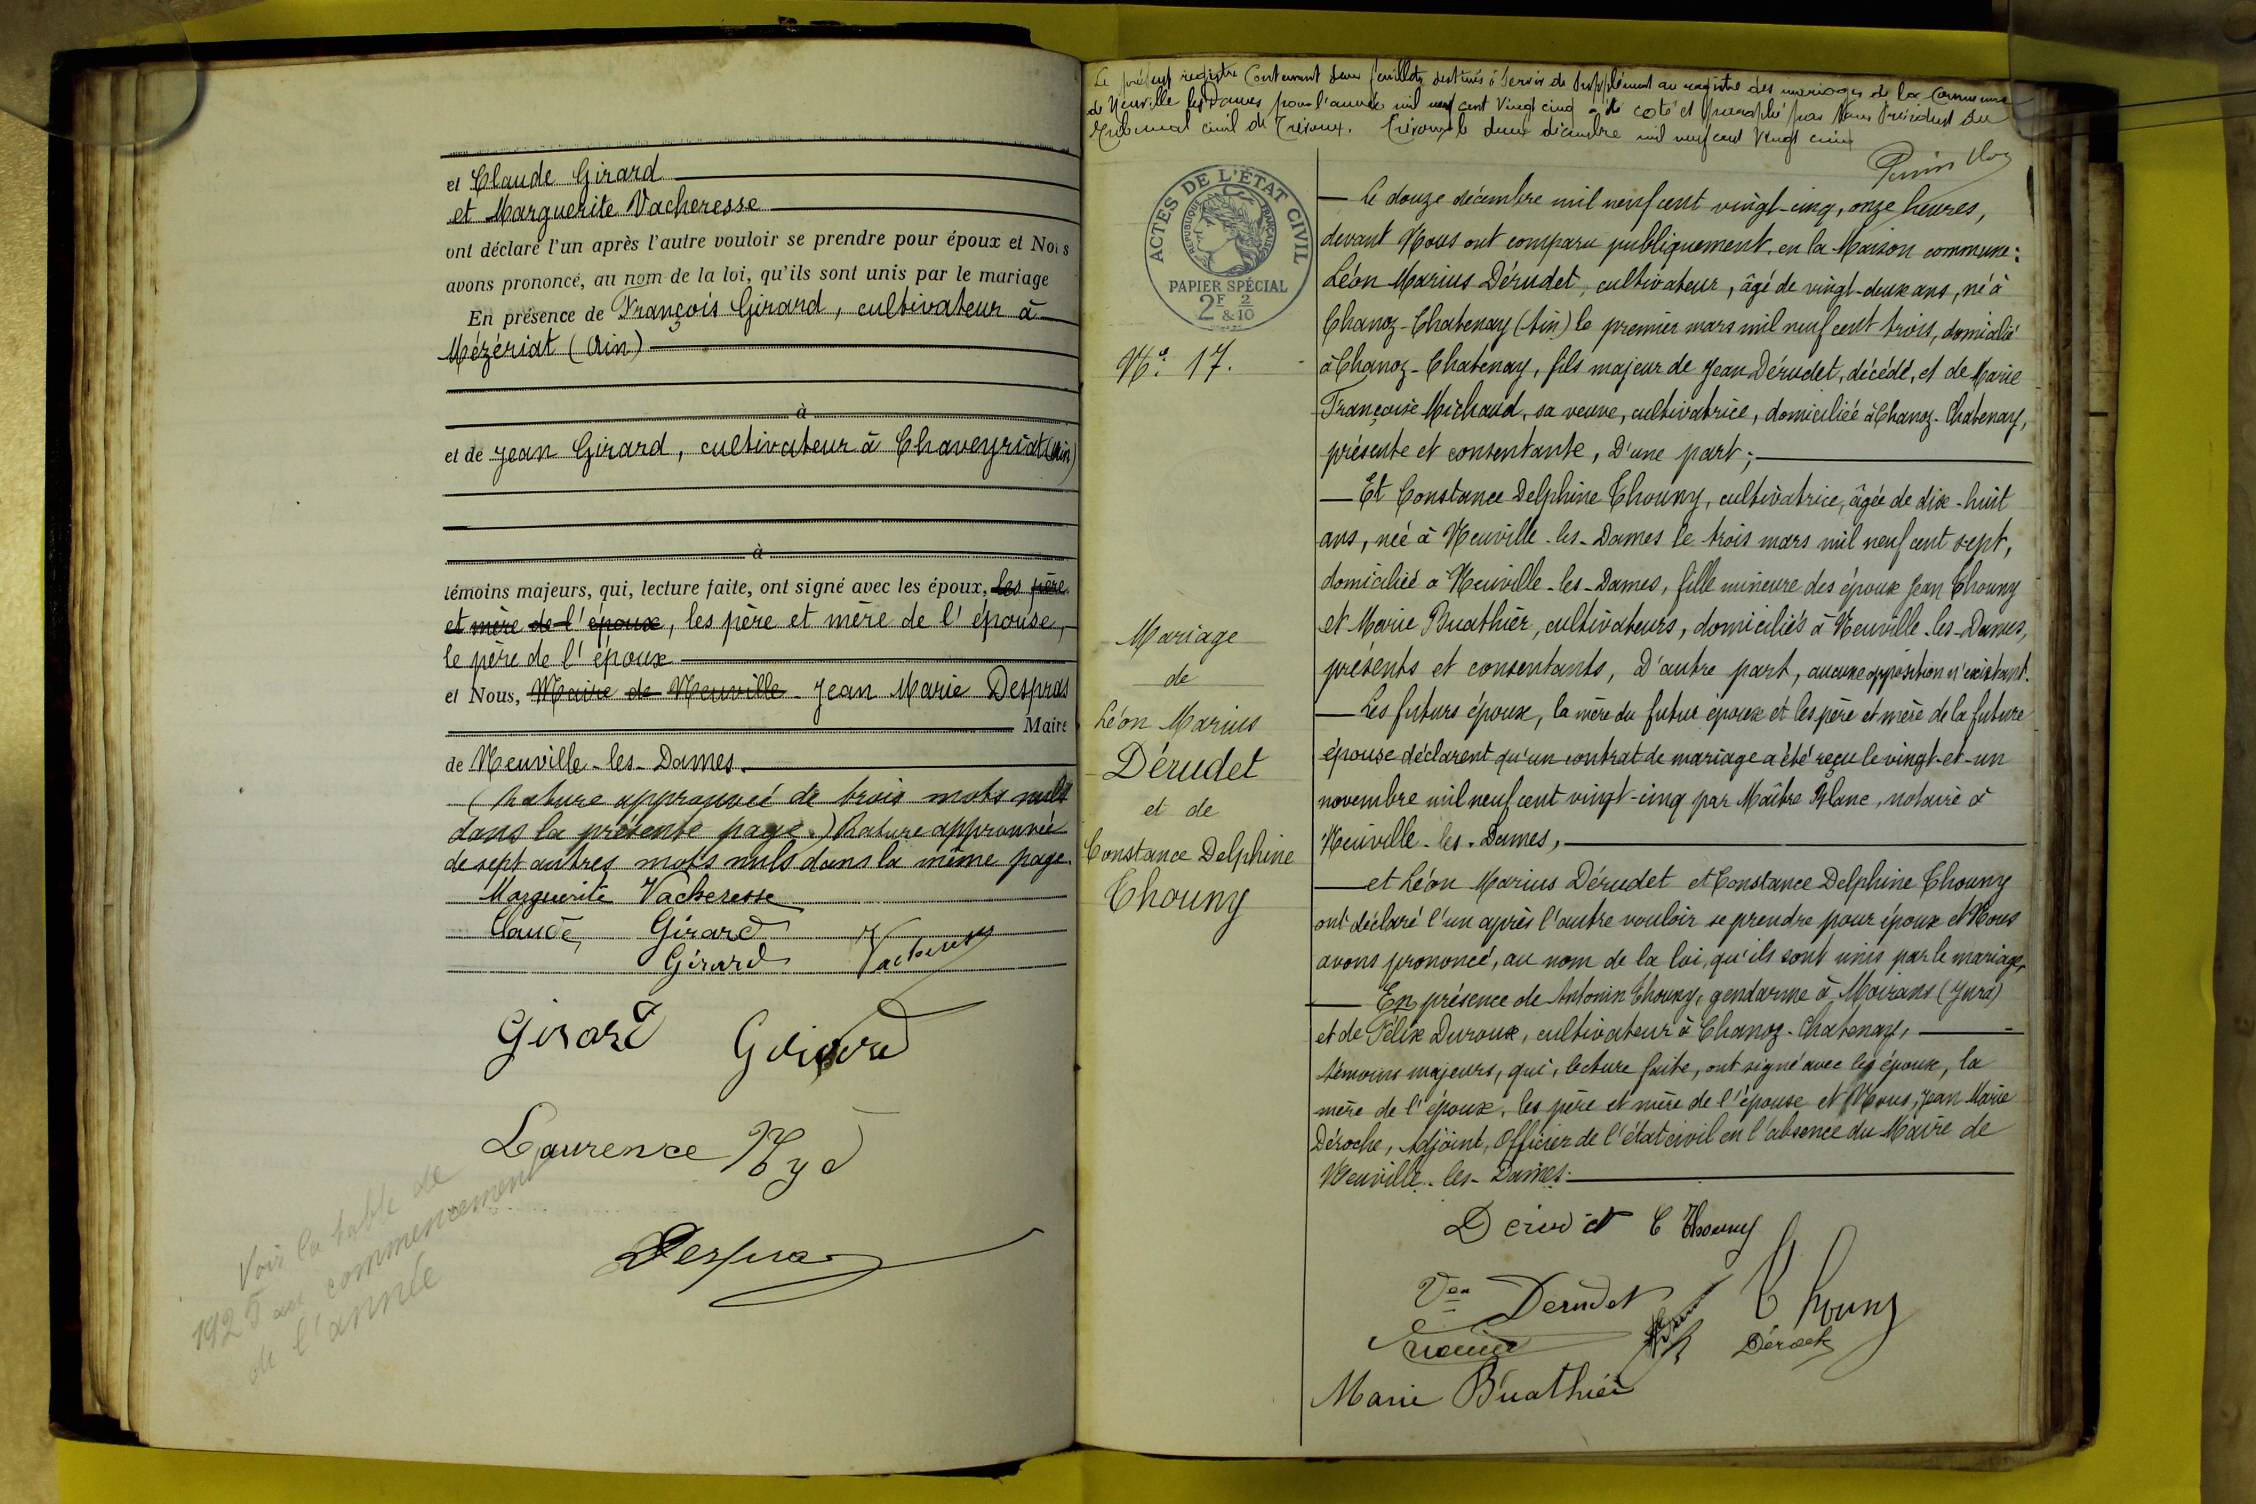 et Claude Girard
et Marguerite Vacheresse
ont déclaré l'un après l'autre vouloir se prendre pour époux et Nous
avons prononcé, au nom de la loi, qu'ils sont unis par le mariage
En présence de François Girard, cultivateur à
Mézériat (Ain)
à
et de Jean Girard, cultivateur à Chaveyriat (Ain)
à
témoins majeurs, qui, lecture faite, ont signé avec les époux, les père
et mère de l'époux, les père et mère de l'épouse,
le père de l'époux
et Nous, Maire de Neuville Jean Marie Despras
Maire
de Neuville-les-Dames.
(Rature approuvée de trois mots nuls
dans la présente page.) Rature approuvée
de sept autres mots nuls dans la même page.
Marguerite Vacheresse
Claude Girard
Girard Vacheresse
Girard Girard
Laurence
Despras
Voir la table de
1925 au commencement
de l'année
Le présent registre contenant deux feuillets destinés à servir de supplément au registre des mariages de la Commune
de Neuville les Dames pour l'année mil neuf cent vingt cinq a été coté et paraphé par Nous Président du
Tribunal civil de Trévoux. Trévoux le deux décembre mil neuf cent vingt cinq
ACTES DE L'ÉTAT CIVIL
RÉPUBLIQUE FRANÇAISE
PAPIER SPÉCIAL
2F & 2/10
N° 17.
Mariage
de
Léon Marius
Dérudet
et de
Constance Delphine
Thouny
— Le douze décembre mil neuf cent vingt-cinq, onze heures,
devant Nous ont comparu publiquement en la Maison commune:
Léon Marius Dérudet, cultivateur, âgé de vingt-deux ans, né à
Chanoz-Chatenay (Ain) le premier mars mil neuf cent trois, domicilié
à Chanoz-Chatenay, fils majeur de Jean Dérudet, décédé, et de Marie
Françoise Michaud, sa veuve, cultivatrice, domiciliée à Chanoz-Chatenay,
présente et consentante, D'une part;
— Et Constance Delphine Thouny, cultivatrice, âgée de dix-huit
ans, née à Neuville-les-Dames le trois mars mil neuf cent sept,
domiciliée à Neuville-les-Dames, fille mineure des époux Jean Thouny
et Marie Buathier, cultivateurs, domiciliés à Neuville-les-Dames,
présents et consentants, D'autre part, aucune opposition n'existant.
— Les futurs époux, la mère du futur époux et les père et mère de la future
épouse déclarent qu'un contrat de mariage a été reçu le vingt-et-un
novembre mil neuf cent vingt-cinq par Maître Blanc, notaire à
Neuville-les-Dames,
— et Léon Marius Dérudet et Constance Delphine Thouny
ont déclaré l'un après l'autre vouloir se prendre pour époux et Nous
avons prononcé, au nom de la loi, qu'ils sont unis par le mariage,
— En présence de Antonin Thouny, gendarme à Moirans (Jura)
et de Félix Duroux, cultivateur à Chanoz-Chatenay,
témoins majeurs, qui, lecture faite, ont signé avec les époux, la
mère de l'époux, les père et mère de l'épouse et Nous, Jean Marie
Déroche, Adjoint, Officier de l'état civil en l'absence du Maire de
Neuville-les-Dames.
Dérudet C Thouny
Vve Dérudet Thouny
Déroche
Marie Buathier